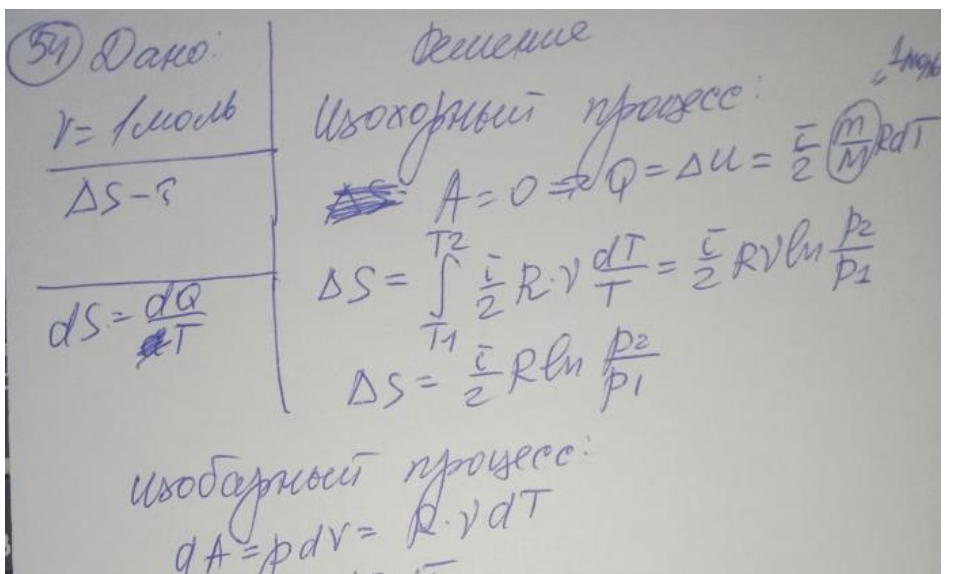 54 Дано:
ν = 1 моль
ΔS - ?
dS = dQ/T
Решение
Изохорный процесс:
1 моль
A = 0 => Q = ΔU = i/2 m/M RdT
ΔS = ∫_{T1}^{T2} i/2 R·ν dT/T = i/2 Rν ln p2/p1
ΔS = i/2 R ln p2/p1
Изобарный процесс:
dA = pdV = R·νdT